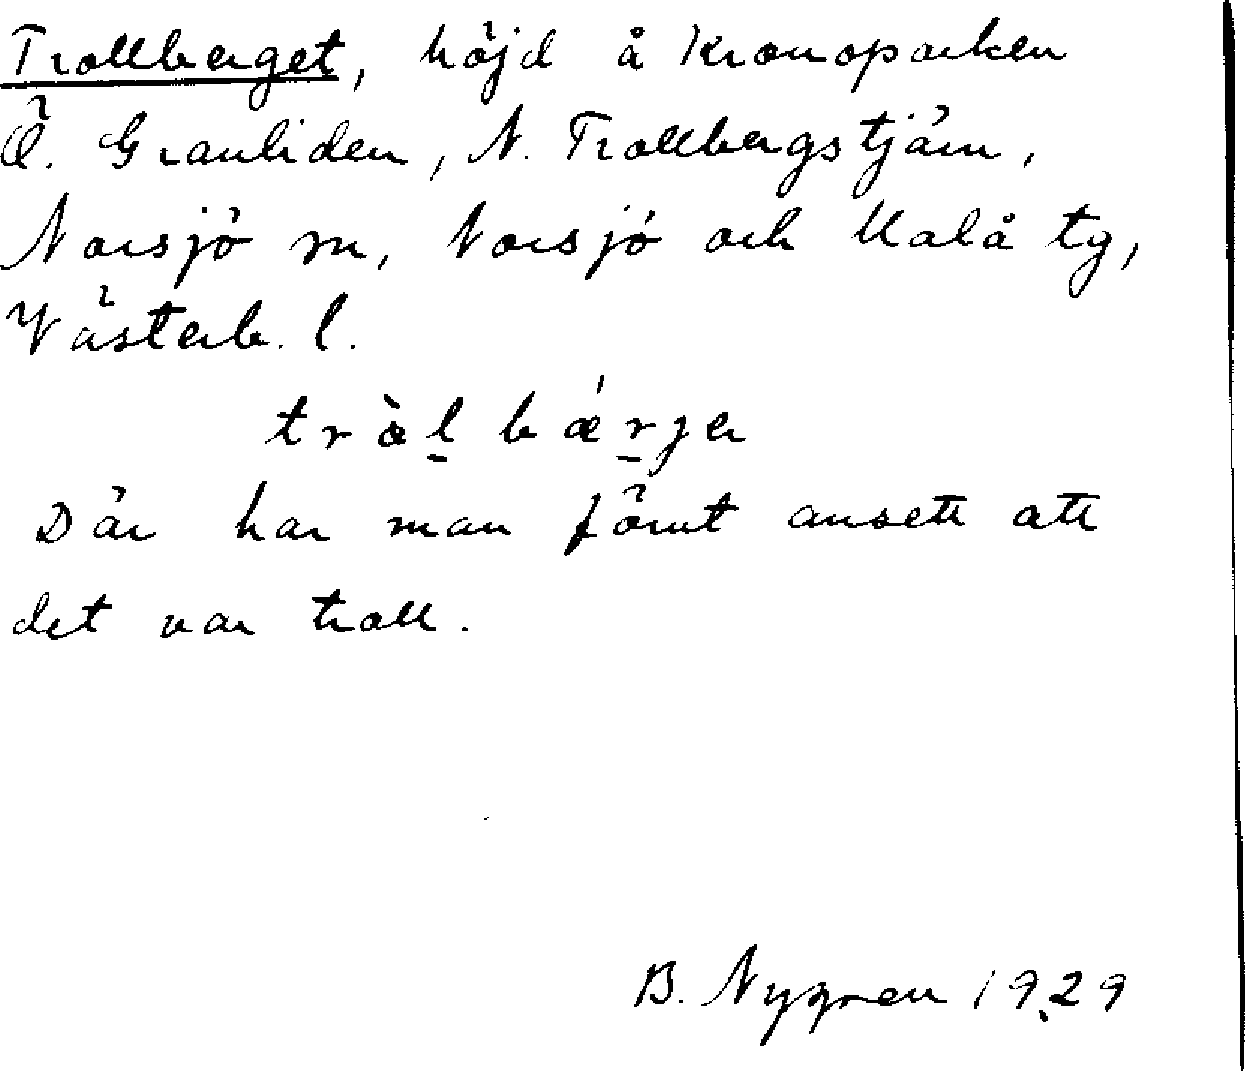 Trollberget, höjd å Kronoparken
Ö. Granliden, N. Trollbergstjärn,
Norsjö sn, Norsjö och Malå tg,
Västerb. l.
trò̀l bǽrja
Där har man förut ansett att
det var troll.
B. Nygren 1929